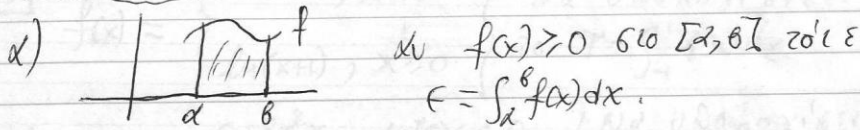 α) f αν f(x) ≥ 0 στο [α, β] τότε
α β Ε = ∫_α^β f(x) dx.